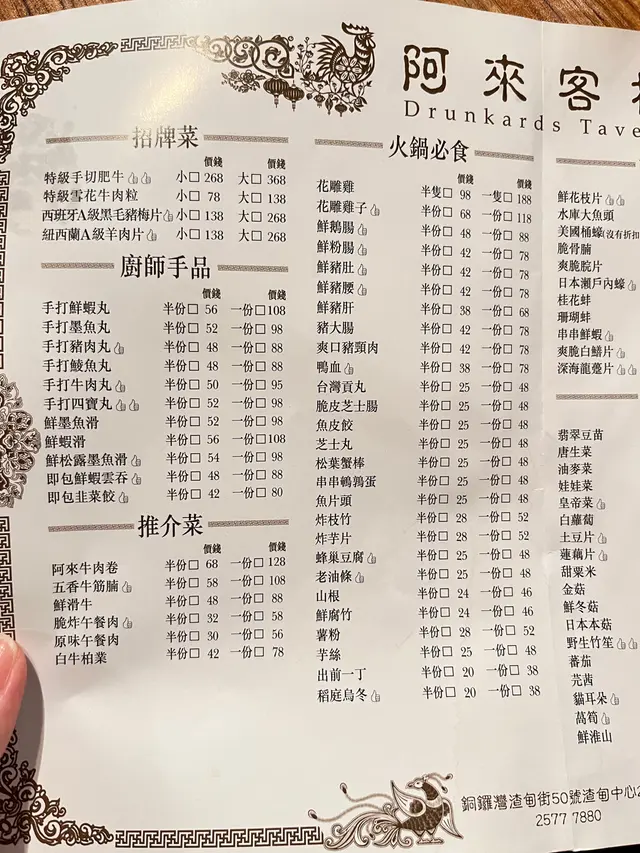 阿來客
Drunkards Tave
招牌菜
價錢 價錢
特級手切肥牛 小□ 268 大□ 368
特級雪花牛肉粒 小□ 78 大□ 138
西班牙A級黑毛豬梅片 小□ 138 大□ 268
紐西蘭A級羊肉片 小□ 138 大□ 268
廚師手品
價錢 價錢
手打鮮蝦丸 半份□ 56 一份□108
手打墨魚丸 半份□ 52 一份□ 98
手打豬肉丸 半份□ 48 一份□ 88
手打鯪魚丸 半份□ 48 一份□ 88
手打牛肉丸 半份□ 50 一份□ 95
手打四寶丸 半份□ 52 一份□ 98
鮮墨魚滑 半份□ 52 一份□ 98
鮮蝦滑 半份□ 56 一份□108
鮮松露墨魚滑 半份□ 54 一份□ 98
即包鮮蝦雲吞 半份□ 48 一份□ 88
即包韭菜餃 半份□ 42 一份□ 80
推介菜
價錢 價錢
阿來牛肉卷 半份□ 68 一份□ 128
五香牛筋腩 半份□ 58 一份□ 108
鮮滑牛 半份□ 48 一份□ 88
脆炸午餐肉 半份□ 32 一份□ 58
原味午餐肉 半份□ 30 一份□ 56
白牛柏業 半份□ 42 一份□ 78
火鍋必食
價錢 價錢
花雕雞 半隻□ 98 一隻□ 188
花雕雞子 半份□ 68 一份□ 118
鮮鵝腸 半份□ 48 一份□ 88
鮮粉腸 半份□ 42 一份□ 78
鮮豬肚 半份□ 42 一份□ 78
鮮豬腰 半份□ 42 一份□ 78
鮮豬肝 半份□ 38 一份□ 68
豬大腸 半份□ 42 一份□ 78
爽口豬頸肉 半份□ 42 一份□ 78
鴨血 半份□ 38 一份□ 78
台灣貢丸 半份□ 25 一份□ 48
脆皮芝士腸 半份□ 25 一份□ 48
魚皮餃 半份□ 25 一份□ 48
芝士丸 半份□ 25 一份□ 48
松葉蟹棒 半份□ 25 一份□ 48
串串鵪鶉蛋 半份□ 25 一份□ 48
魚片頭 半份□ 25 一份□ 48
炸枝竹 半份□ 28 一份□ 52
炸芋片 半份□ 28 一份□ 52
蜂巢豆腐 半份□ 25 一份□ 48
老油條 半份□ 25 一份□ 48
山根 半份□ 24 一份□ 46
鮮腐竹 半份□ 24 一份□ 46
薯粉 半份□ 28 一份□ 52
芋絲 半份□ 25 一份□ 48
出前一丁 半份□ 20 一份□ 38
稻庭烏冬 半份□ 20 一份□ 38
鮮花枝片
水庫大魚頭
美國桶蠔(沒有折扣
脆骨腩
爽脆脘片
日本瀨戶內蠔
桂花蚌
珊瑚蚌
串串鮮蝦
爽脆白鱔片
深海龍躉片
翡翠豆苗
唐生菜
油麥菜
娃娃菜
皇帝菜
白蘿蔔
土豆片
蓮藕片
甜粟米
金菇
鮮冬菇
日本本菇
野生竹笙
蕃茄
芫茜
貓耳朵
萵筍
鮮淮山
銅鑼灣渣甸街50號渣甸中心2
2577 7880